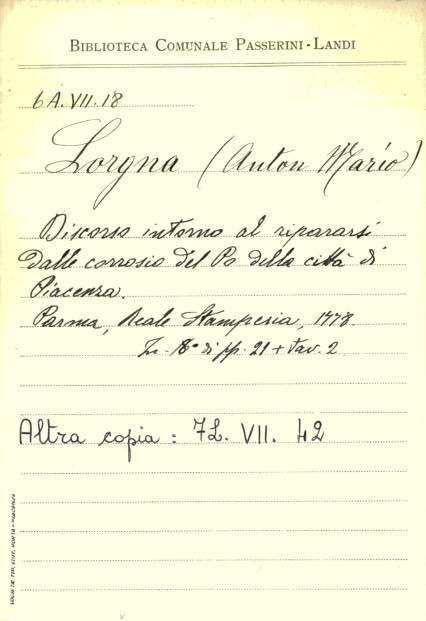 BIBLIOTECA COMUNALE PASSERINI-LANDI
6A.VII.18
Lorgna (Anton Mario)
Discorso intorno al ripararsi
dalle corrosio del Po della città di
Piacenza.
Parma, Reale Stamperia, 1778.
8° di pp. 21 + tav. 2
Altra copia: 7L. VII. 42